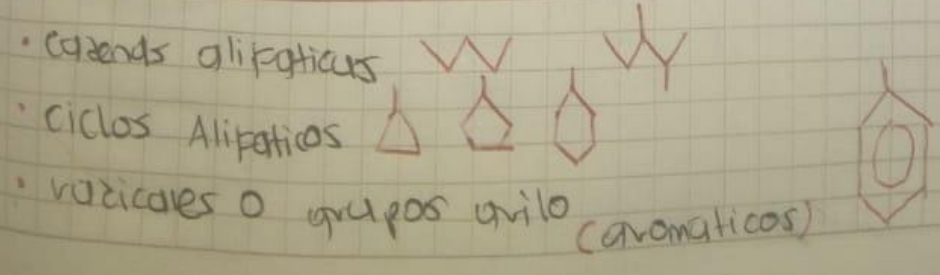 · cadenas alifaticas
· Ciclos Alifaticos
· radicales o grupos arilo
(aromaticos)